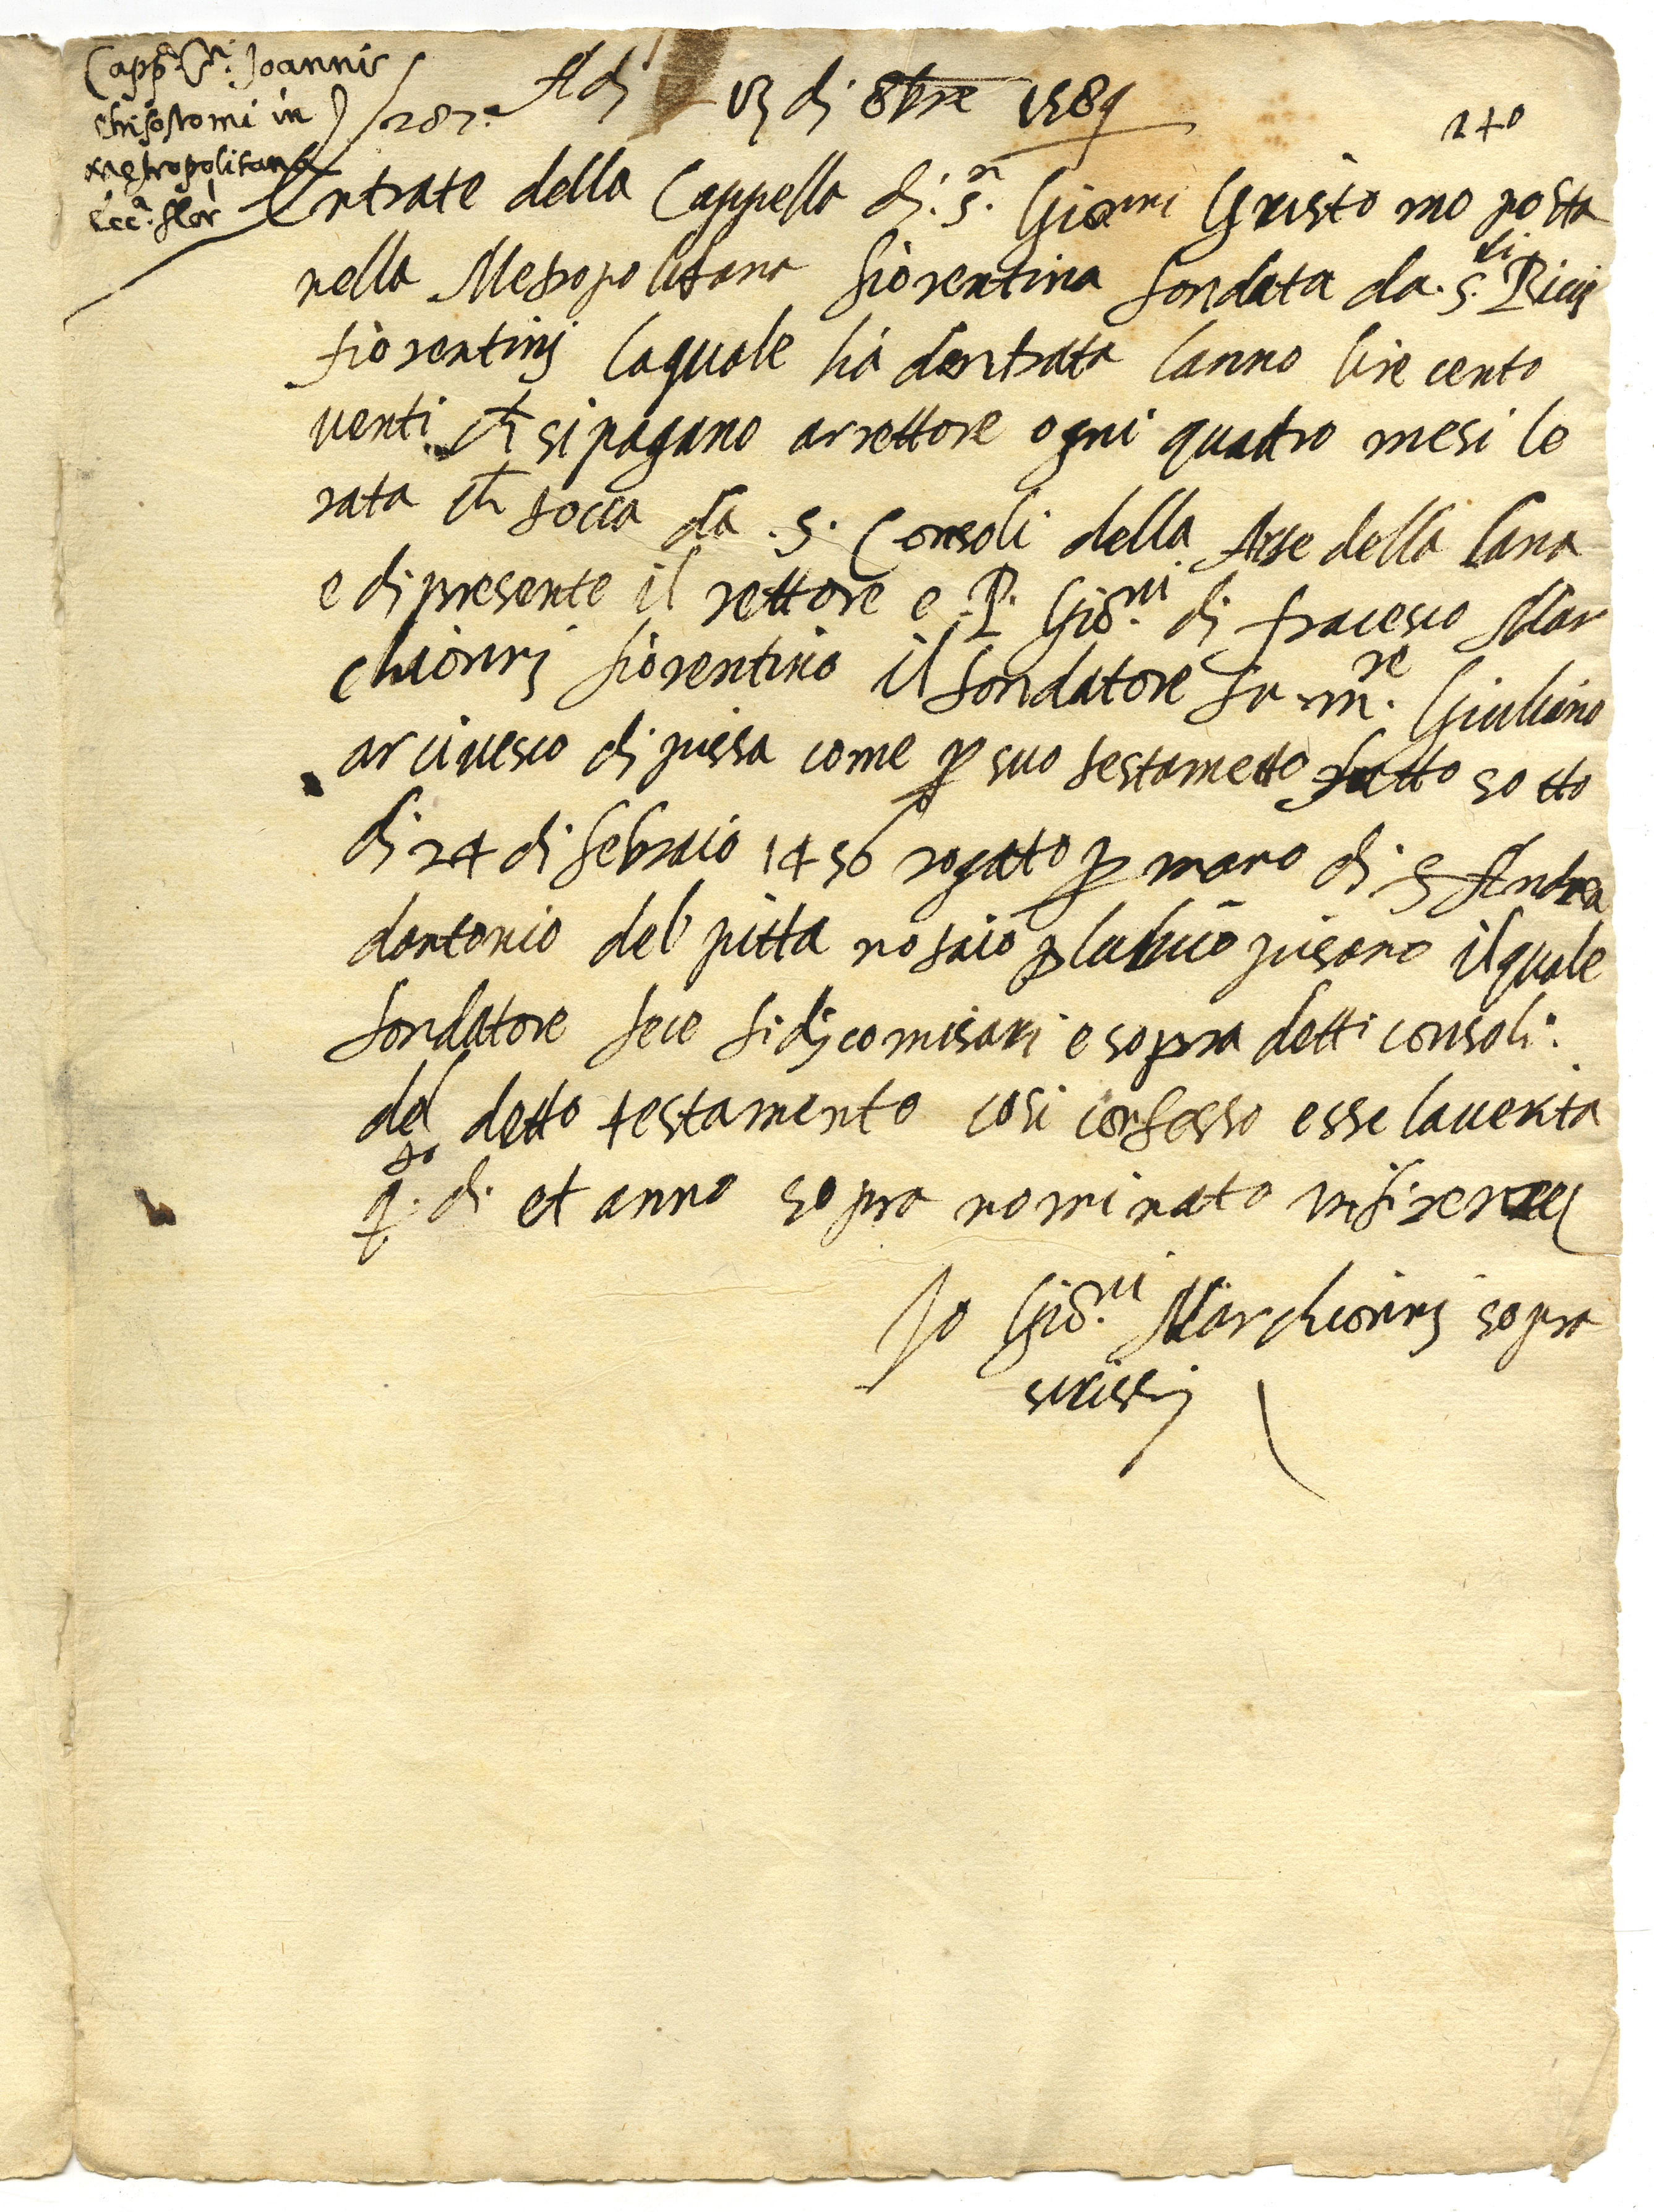 Capp.ª S.ti Joannis
Chrisostomi in
metropolitana
Ecc.ª flor
287.
Adi 13 di 8bre 1589
240
Entrate della Cappella di S.n Giovanni Gristo mo posta
nella Metropolitana fiorentina fondata da s.ti Ricci
fiorentinj laquale hà dentrata lanno lire cento
venti ch si pagano arrettore ogni quatro mesi le
rata ch tocca da .s. Consoli della Arte della lana
e di presente il rettore e P. Gio.ni di fracesco Mar
chionnj fiorentino il fondatore fu m.re Giuliano
arcivesco di pissa come p suo testametto fatto sotto
di 24 di febraio 1456 rogato p mano di S Andrea
dantonio del pitta notaio publicio pisano il quale
fondatore fece fidecomisari e sopra detti consoli.
del detto testamento cosi confesso esse la verita
q.to di et anno sopra nominato in firenze
Io Gio.ni Marchionnj sopra
scrissj